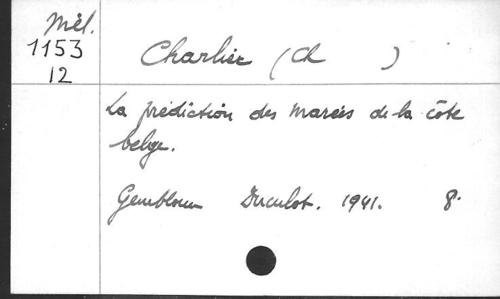 Mél.
1153
12
Charlier (Ch )
La prédiction des marées de la côte
belge.
Gembloux Duculot. 1941. 8.